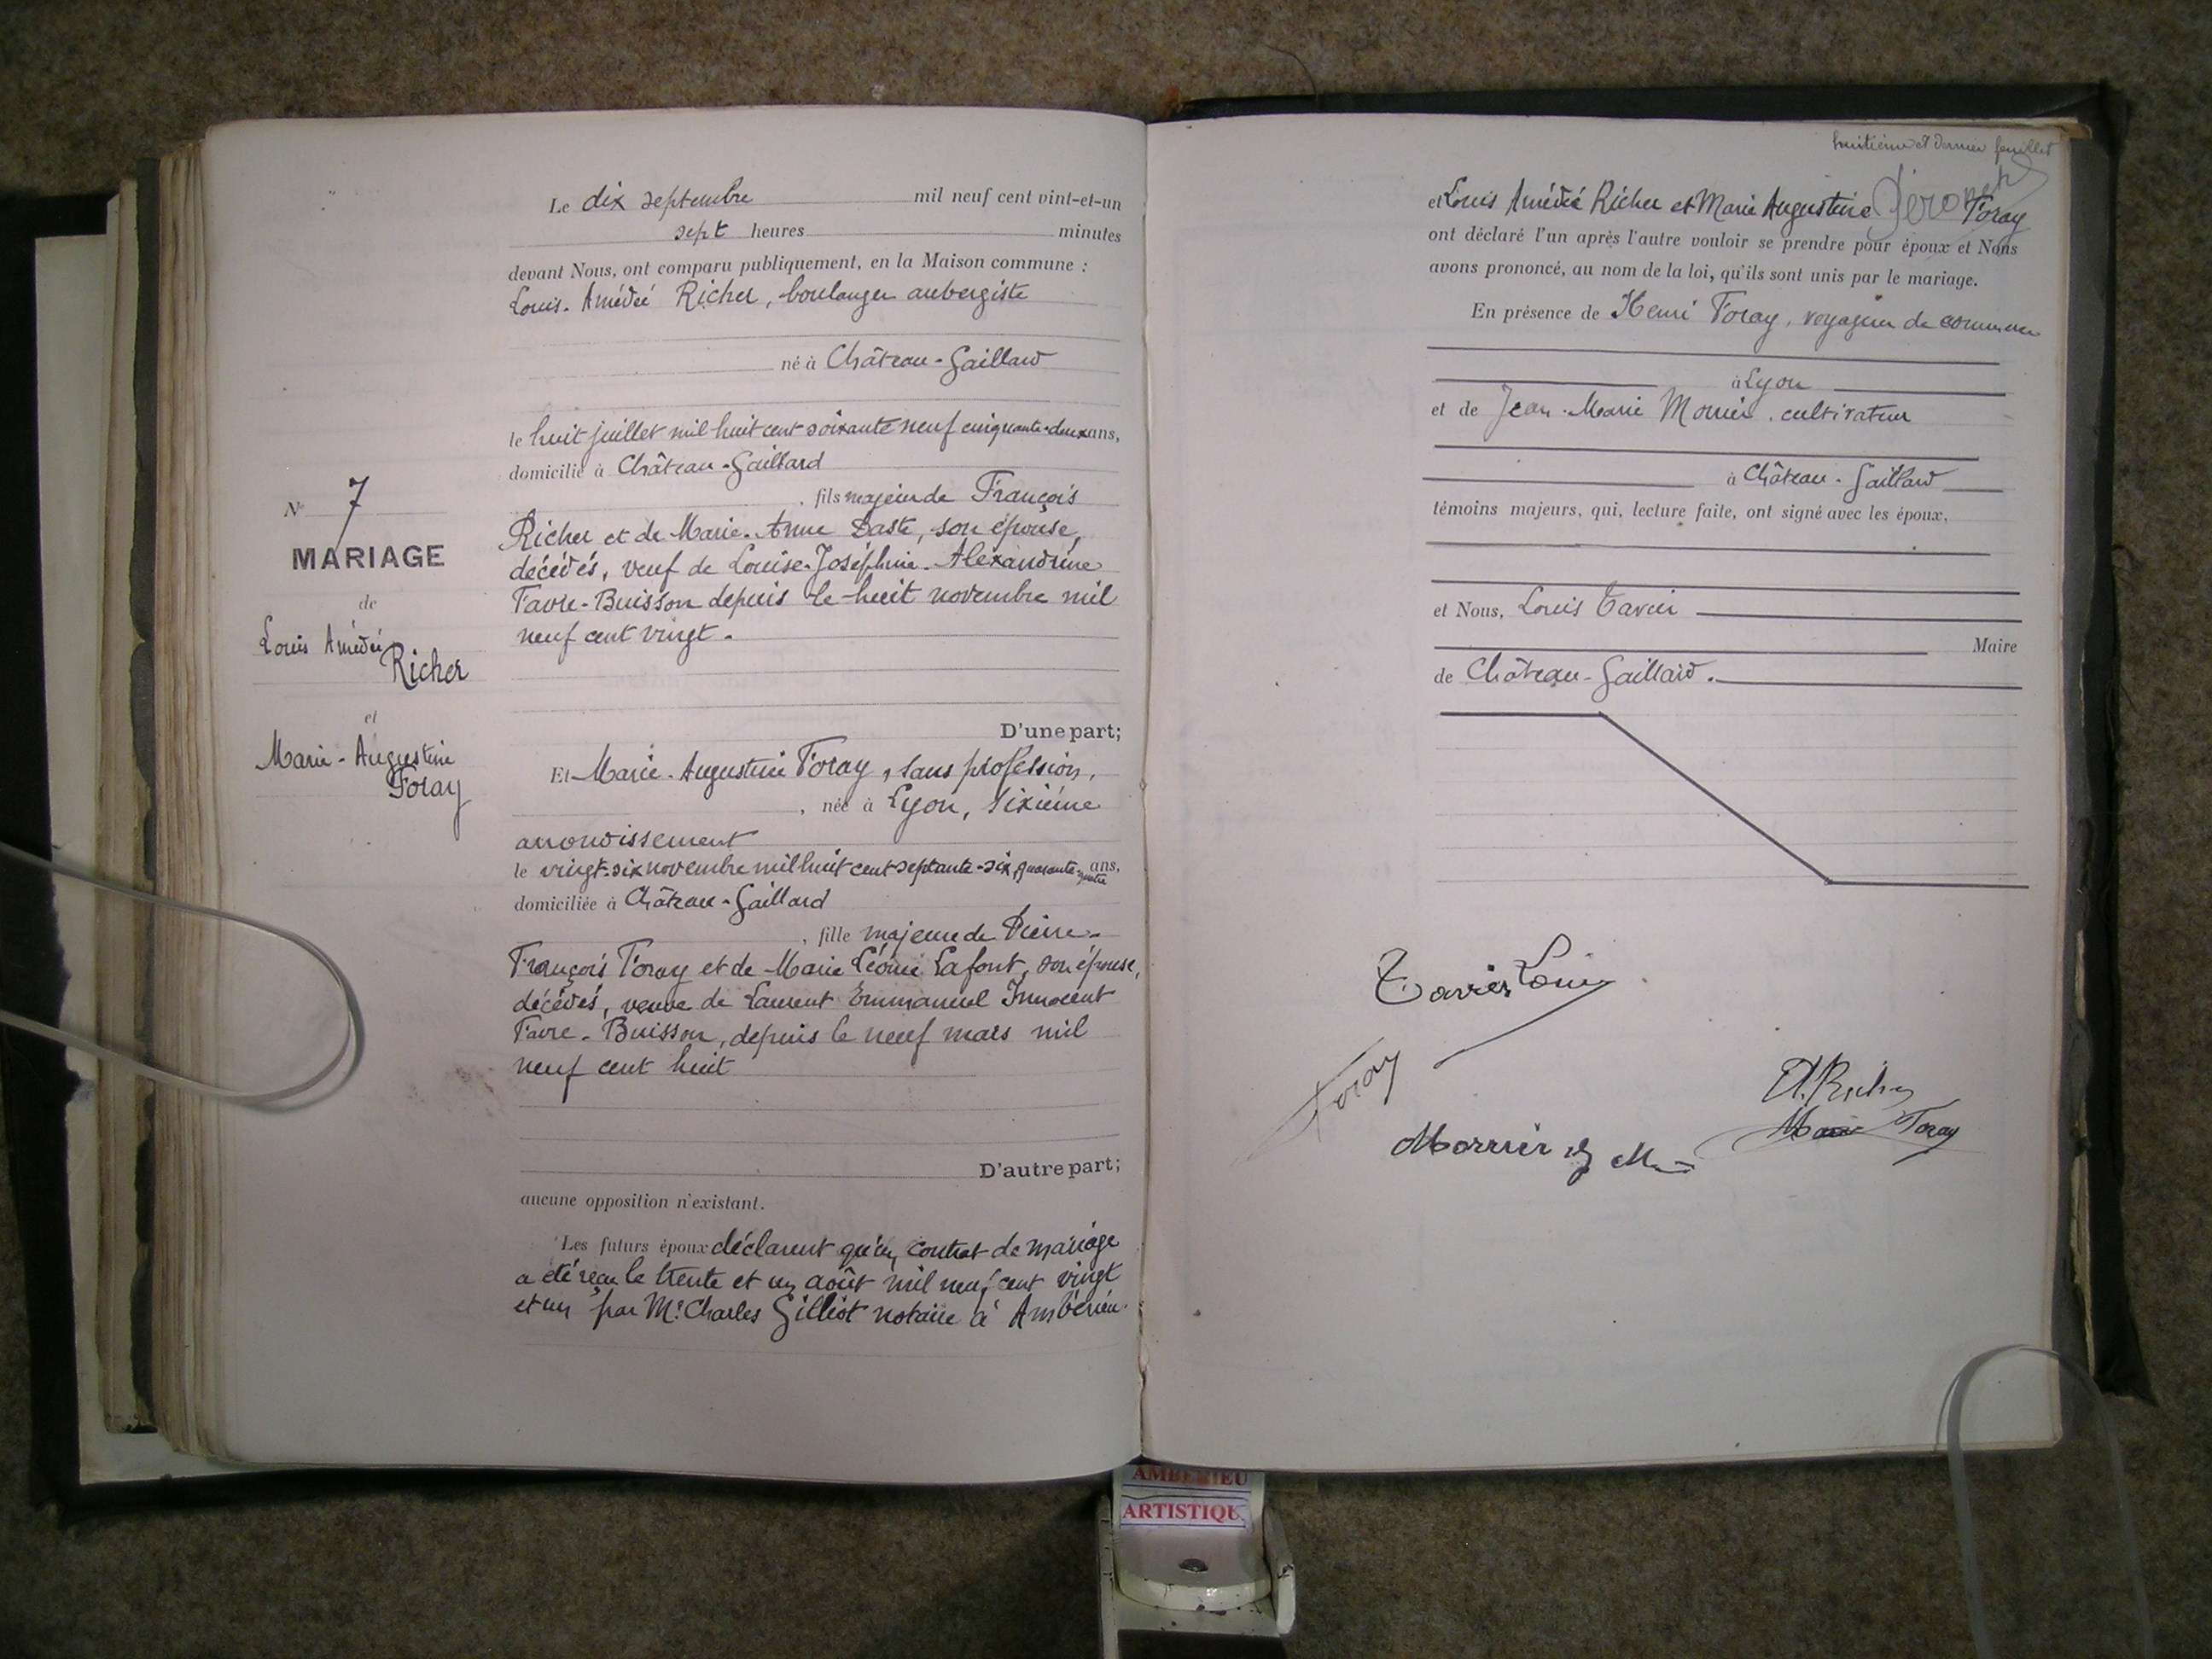 Le dix septembre mil neuf cent vint-et-un
sept heures minutes
devant Nous, ont comparu publiquement, en la Maison commune :
Louis-Amédée Richer, boulanger aubergiste
né à Château-Gaillard
le huit juillet mil huit cent soixante neuf cinquante-deux ans,
domicilié à Château-Gaillard
, fils majeur de François
Richer et de Marie-Anne Daste, son épouse,
décédés, veuf de Louise-Joséphine-Alexandrine
Favre-Buisson depuis le huit novembre mil
neuf cent vingt.
D'une part;
Et Marie-Augustine Foray, sans profession,
, née à Lyon, sixième
arrondissement
le vingt-six novembre mil huit cent septante-six, quarante-quatre ans,
domiciliée à Château-Gaillard
, fille majeure de Pierre-
François Foray et de Marie Léonie Lafont, son épouse,
décédés, veuve de Laurent Emmanuel Innocent
Favre-Buisson, depuis le neuf mars mil
neuf cent huit
D'autre part;
aucune opposition n'existant.
Les futurs époux déclarent qu'un contrat de mariage
a été reçu le trente et un août mil neuf cent vingt
et un par Me Charles Gilliot notaire à Ambérieu.
No 7
MARIAGE
de
Louis Amédée
Richer
et
Marie-Augustine
Foray
huitième et dernier feuillet
et Louis Amédée Richer et Marie Augustine Foray
ont déclaré l'un après l'autre vouloir se prendre pour époux et Nous
avons prononcé, au nom de la loi, qu'ils sont unis par le mariage.
En présence de Henri Foray, voyageur de commerce
à Lyon
et de Jean-Marie Monier, cultivateur
à Château-Gaillard
témoins majeurs, qui, lecture faite, ont signé avec les époux,
et Nous, Louis Tavier
Maire
de Château-Gaillard.
Tavier Louis
Foray
A. Richer
Marie Foray
AMBERIEU
ARTISTIQU